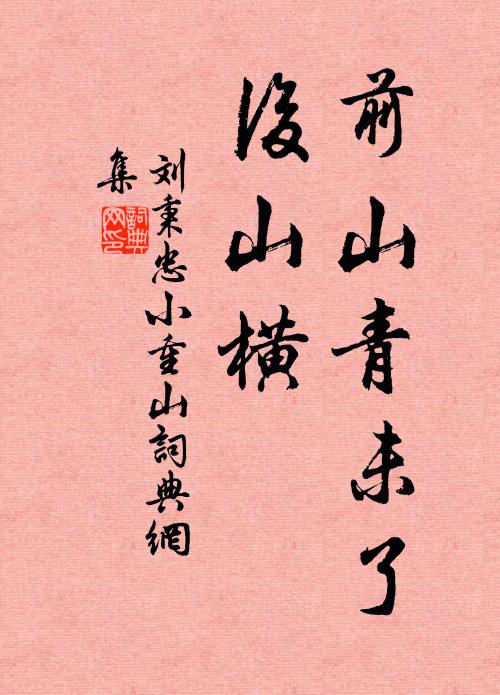 前山青未了
後山橫
刘秉忠小重山詞典網
集
詞典网印